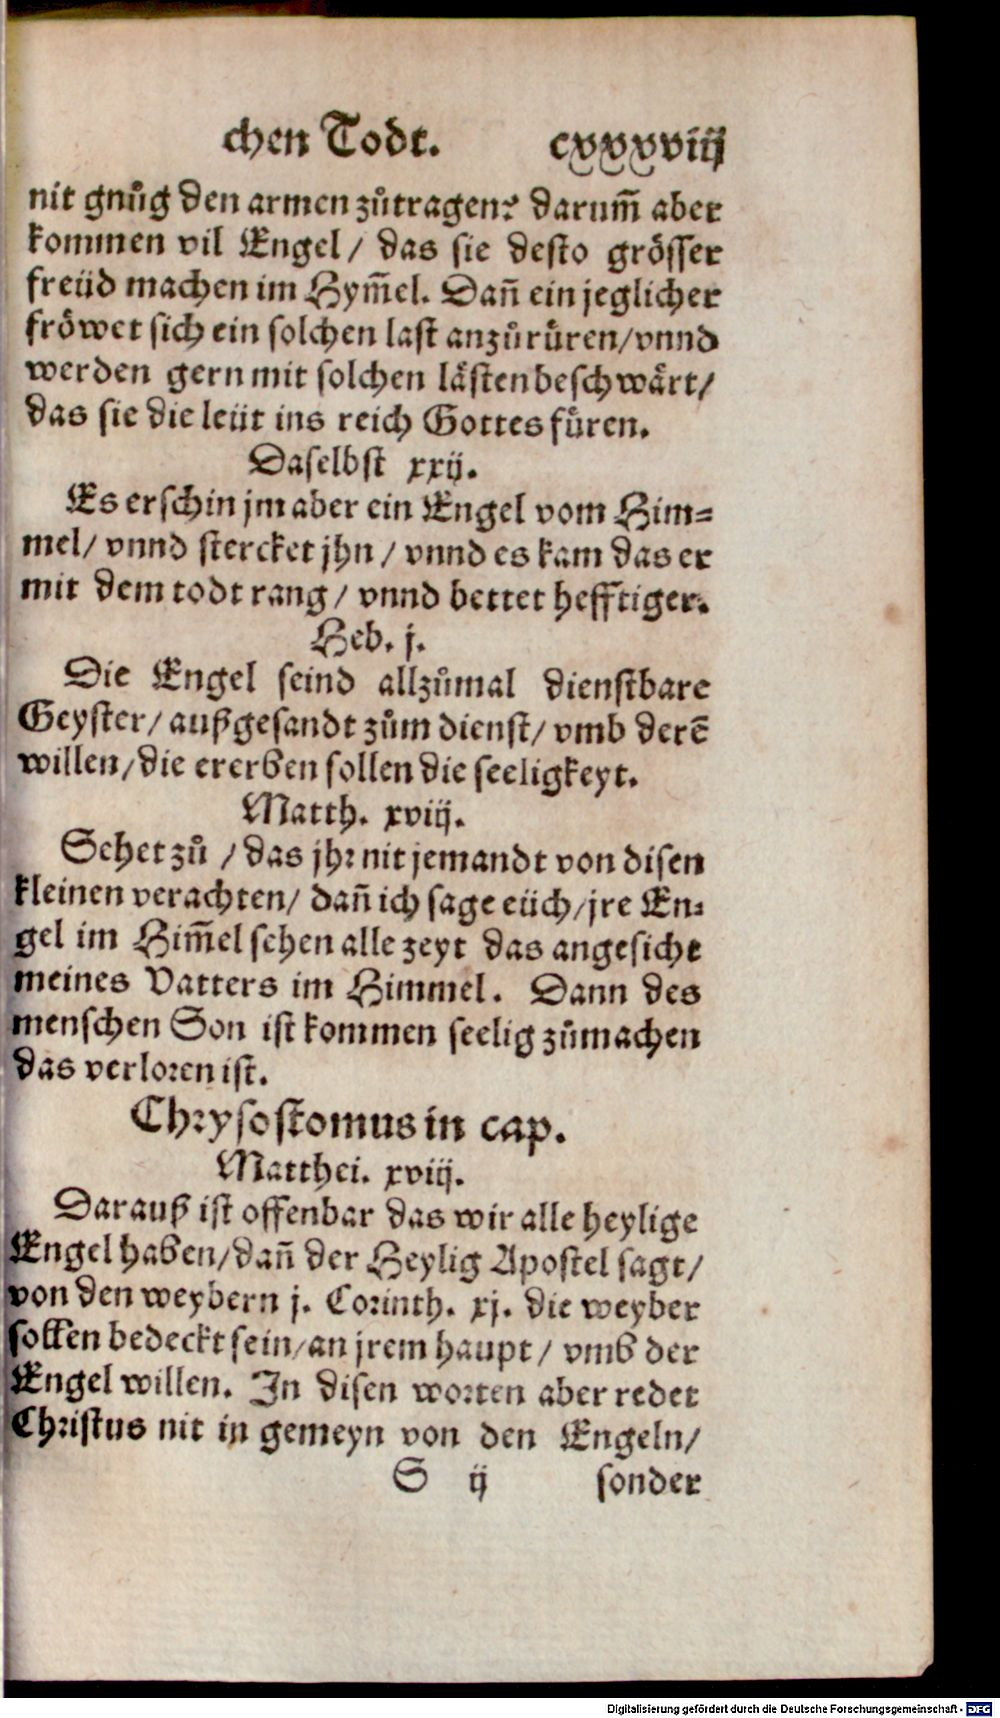 chen Todt. cxxxviij
nit gnůg den armen zůtragen? darum̃ aber
kommen vil Engel / das sie desto grösser
freüd machen im Hym̃el. Dañ ein jeglicher
fröwet sich ein solchen last anzůrůren / vnnd
werden gern mit solchen låsten beschwårt /
das sie die leüt ins reich Gottes fůren.
Daselbst xxij.
Es erschin jm aber ein Engel vom Him⸗
mel / vnnd stercket jhn / vnnd es kam das er
mit dem todt rang / vnnd bettet hefftiger.
Heb. j.
Die Engel seind allzůmal dienstbare
Geyster / außgesandt zům dienst / vmb derẽ
willen / die ererben sollen die seeligkeyt.
Matth. xviij.
Sehet zů / das jhr nit jemandt von disen
kleinen verachten / dañ ich sage eüch / jre En⸗
gel im Him̃el sehen alle zeyt das angesicht
meines Vatters im Himmel. Dann des
menschen Son ist kommen seelig zůmachen
das verloren ist.
Chrysostomus in cap.
Matthei. xviij.
Darauß ist offenbar das wir alle heylige
Engel haben / dañ der Heylig Apostel sagt /
von den weybern j. Corinth. xj. die weyber
sollen bedeckt sein / an jrem haupt / vmb der
Engel willen. In disen worten aber redet
Christus nit in gemeyn von den Engeln /
S ij sonder
Digitalisierung gefördert durch die Deutsche Forschungsgemeinschaft - DFG